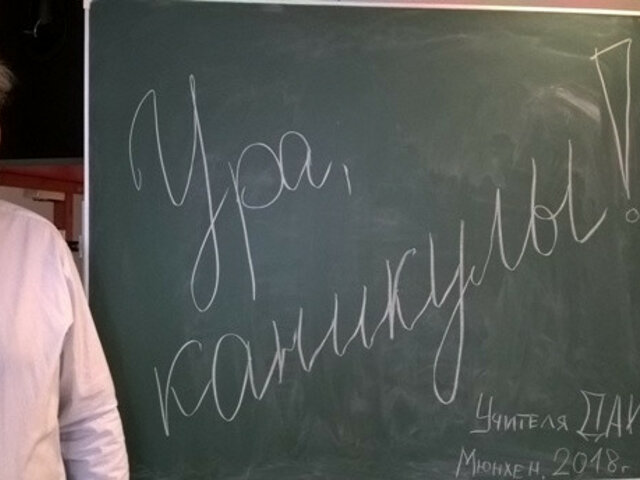 Ура,
каникулы!
Учителя
Мюнхен, 2018г.